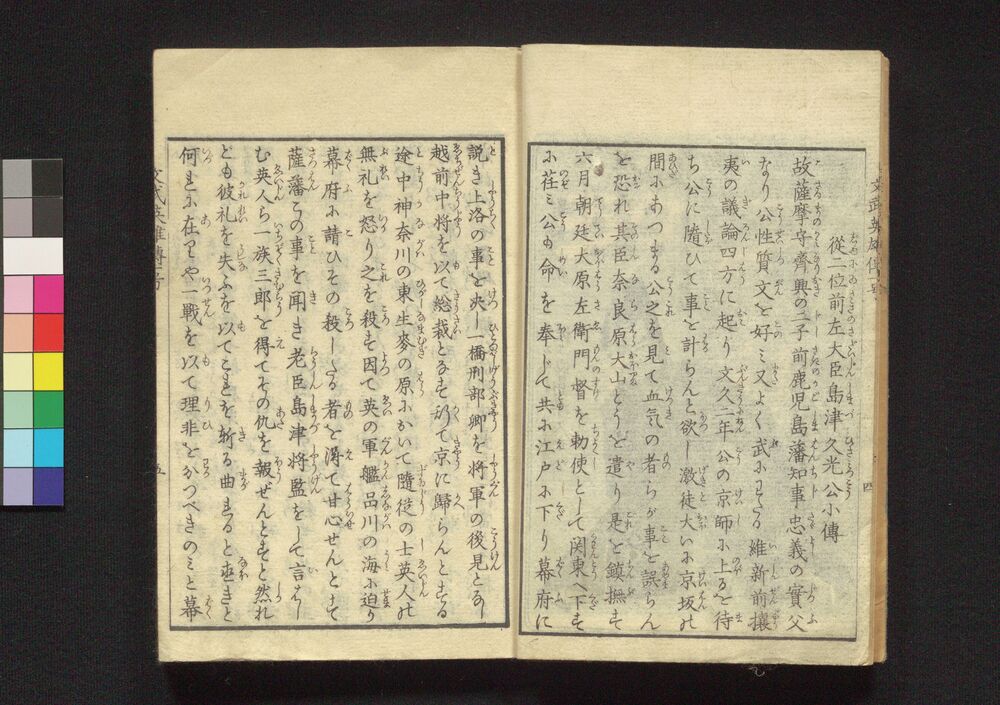 從二位前左大臣島津久光公小傳
故薩摩守齊興の二子前鹿児島藩知事忠義の實父
なり公性質文を好ミ又よく武にわたる維新前攘
夷の議論四方に起り文久二年公の京師に上るを待
ち公に隨ひて事を計らんと欲し激徒大いに京坂の
間にあつまる公之を見て血気の者らが事を誤らん
を恐れ其臣奈良原大山とうを遣り是を鎮撫す
六月朝廷大原左衛門督を勅使として関東へ下す
に荏ミ公も命を奉じて共に江戸に下り幕府に
四
説き上洛の事を决し一橋刑部卿を將軍の後見となし
越前中将を以て総裁となす於て京に歸らんとする
途中神奈川の東生麥の原において隨従の士英人の
無礼を怒り之を殺す因て英の軍艦品川の海に迫り
幕府に請ひその殺したる者を得て甘心せんとす
薩藩この事を聞き老臣島津将監をして言はし
む英人ら一族三郎を得てその仇を報ぜんとすと然れ
ども彼礼を失ふを以てこれを斬る曲るると直きと
何れに在りや一戦を以て理非をわかつべきのミと幕
文武英雄傳一号
五